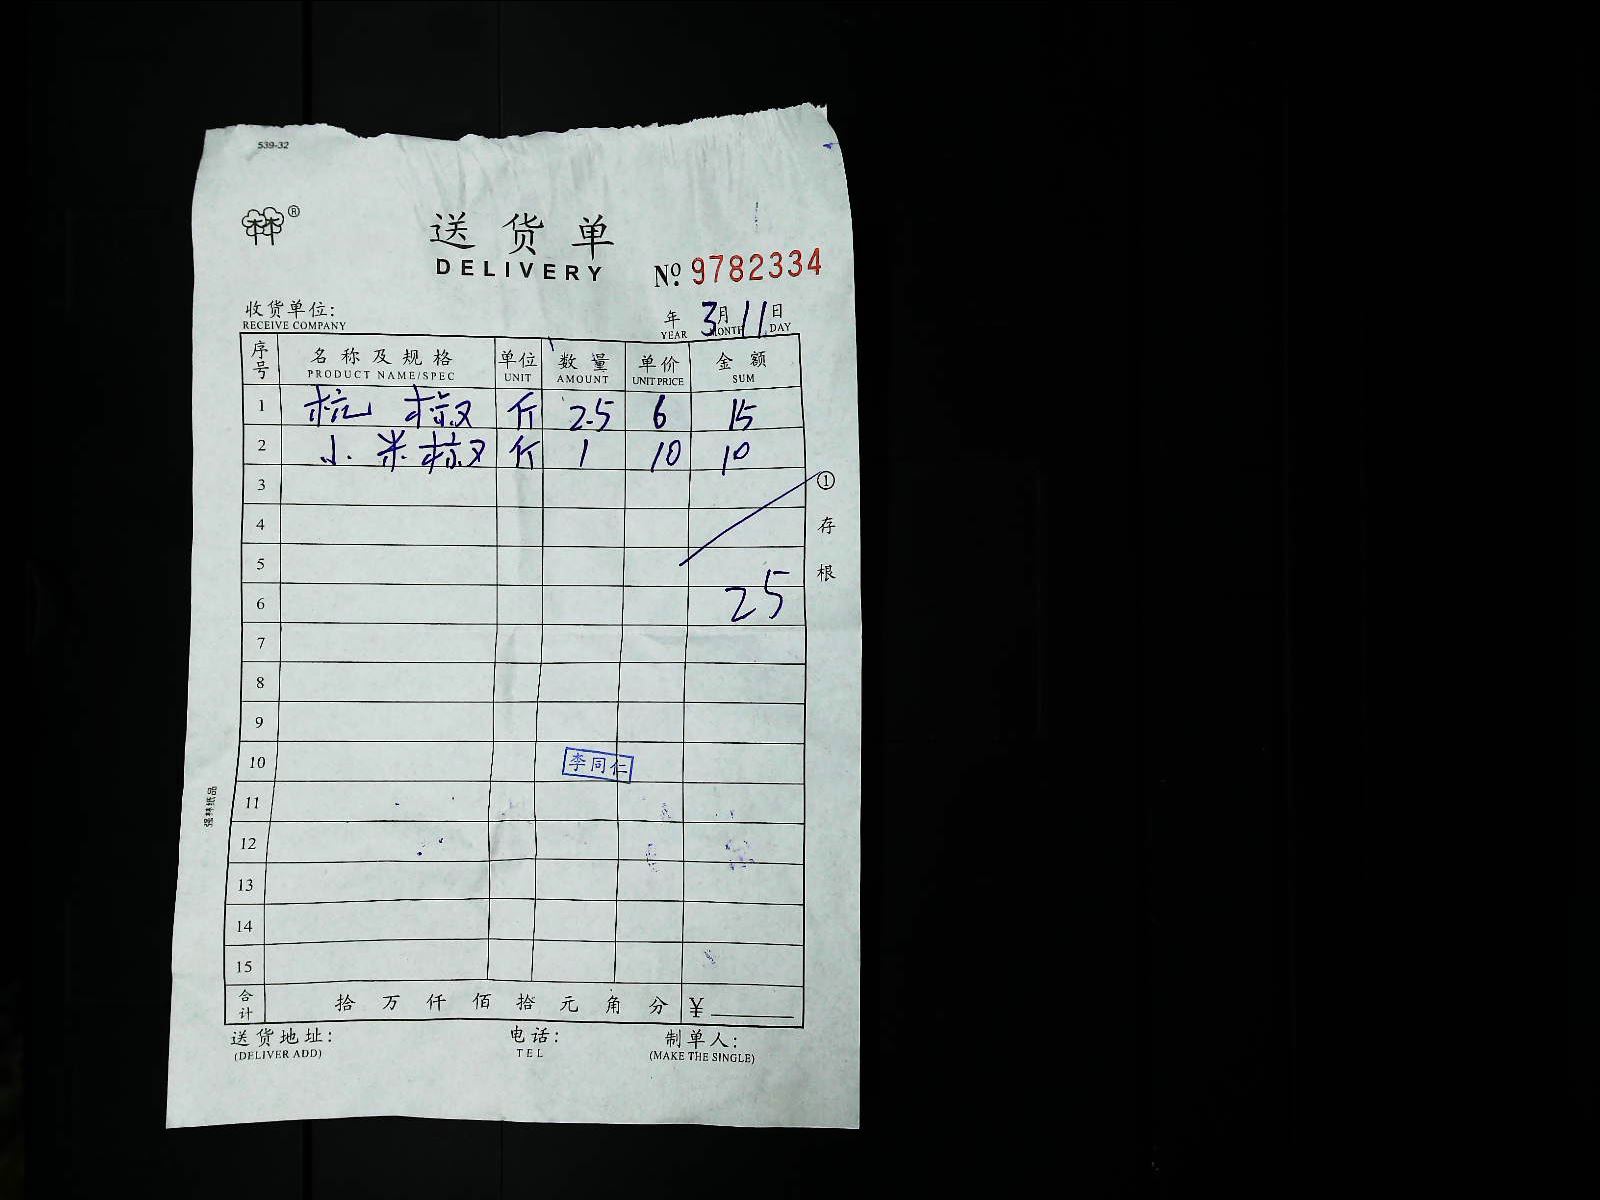 539-32
林®
送货单
DELIVERY
No. 9782334
收货单位:
RECEIVE COMPANY
年 3月 11日
YEAR MONTH DAY
序号 名称及规格 单位 数量 单价 金额
PRODUCT NAME/SPEC UNIT AMOUNT UNIT PRICE SUM
1 杭椒 斤 2.5 6 15
2 小米椒 斤 1 10 10
3
4
5
6 25
7
8
9
10 李同仁
11
12
13
14
15
合计 拾 万 仟 佰 拾 元 角 分 ¥
送货地址: 电话: 制单人:
(DELIVER ADD) TEL (MAKE THE SINGLE)
①存根
强林纸品